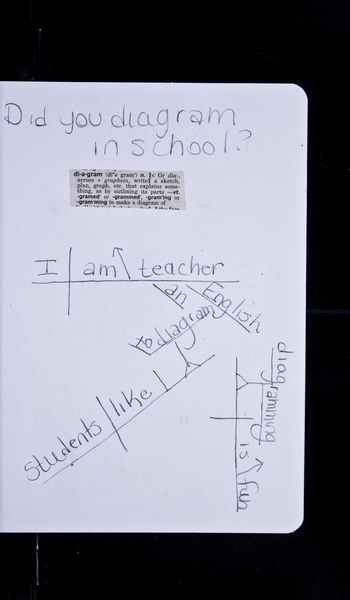 Did you diagram
in school?
di•a•gram (dī′ə gram′) n. [< Gr dia-,
across + graphein, write] a sketch,
plan, graph, etc. that explains some-
thing, as by outlining its parts —vt.
-gramed′ or -grammed′, -gram′ing or
-gram′ming to make a diagram of
I am teacher
an English
to diagram
Students like
diagramming
is fun